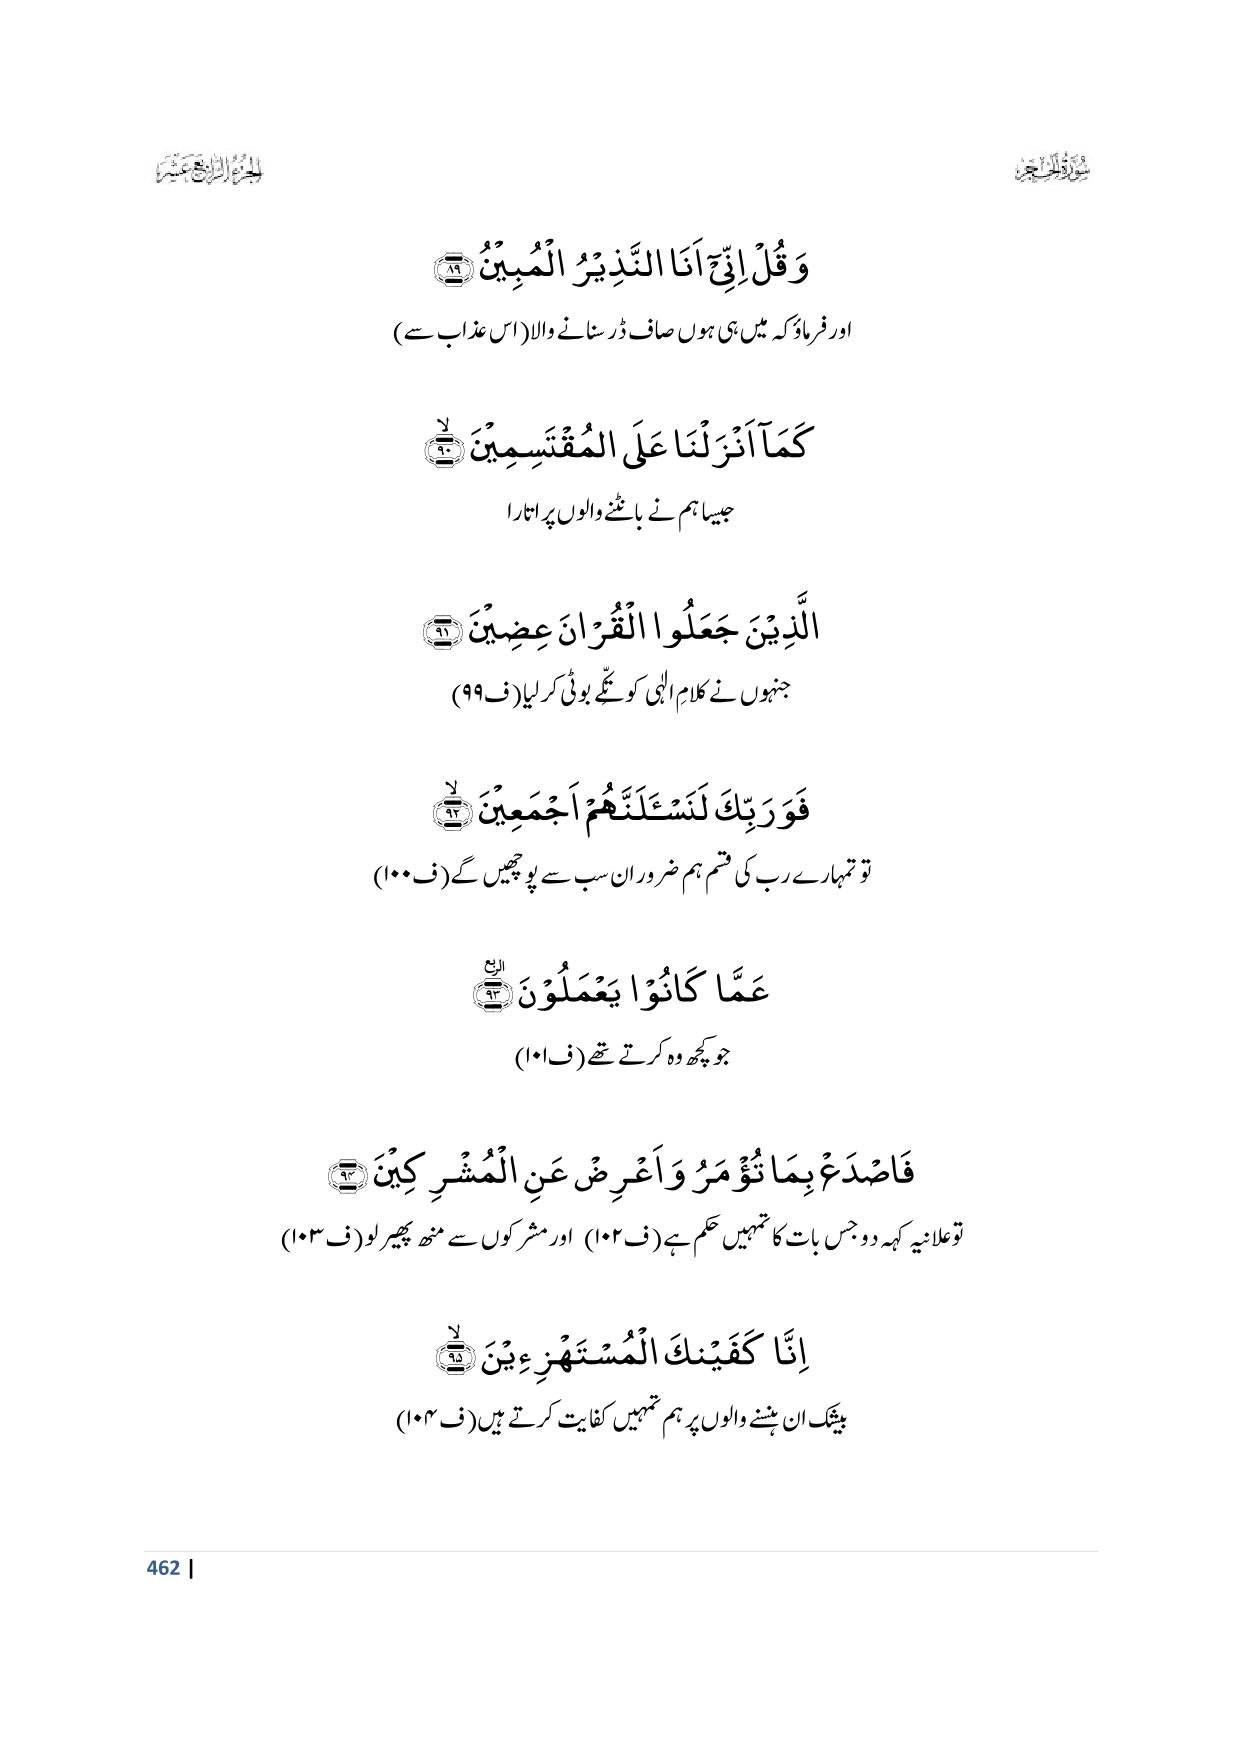 سُوْرَةُ الْحِجْر
الجزء الرابع عشر
وَ قُلْ اِنِّیْۤ اَنَا النَّذِیْرُ الْمُبِیْنُ ﴿۸۹﴾
اور فرماؤ کہ میں ہی ہوں صاف ڈر سنانے والا (اس عذاب سے)
كَمَاۤ اَنْزَلْنَا عَلَى الْمُقْتَسِمِیْنَ ﴿ۙ۹۰﴾
جیسا ہم نے بانٹنے والوں پر اتارا
الَّذِیْنَ جَعَلُوا الْقُرْاٰنَ عِضِیْنَ ﴿۹۱﴾
جنہوں نے کلامِ الٰہی کو تِکّے بوٹی کر لیا (ف۹۹)
فَوَ رَبِّكَ لَنَسْـَٔلَنَّهُمْ اَجْمَعِیْنَ ﴿ۙ۹۲﴾
تو تمہارے رب کی قسم ہم ضرور ان سب سے پوچھیں گے (ف۱۰۰)
عَمَّا كَانُوْا یَعْمَلُوْنَ ﴿۹۳﴾ الربع
جو کچھ وہ کرتے تھے (ف۱۰۱)
فَاصْدَعْ بِمَا تُؤْمَرُ وَ اَعْرِضْ عَنِ الْمُشْرِكِیْنَ ﴿۹۴﴾
تو علانیہ کہہ دو جس بات کا تمہیں حکم ہے (ف۱۰۲) اور مشرکوں سے منھ پھیر لو (ف۱۰۳)
اِنَّا كَفَیْنٰكَ الْمُسْتَهْزِءِیْنَ ﴿ۙ۹۵﴾
بیشک ان ہنسنے والوں پر ہم تمہیں کفایت کرتے ہیں (ف۱۰۴)
462 |